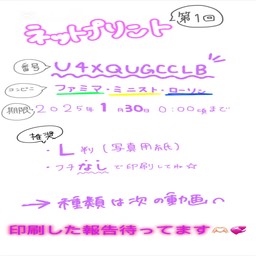 ネットプリント 第1回
番号 U4XQUGCCLB
コンビニ ファミマ・ミニスト・ローソン
期限 2025年1月30日 0:00頃まで
推奨
・L判(写真用紙)
・フチなしで印刷してね☆
→ 種類は次の動画へ
印刷した報告待ってます🫶🏻💞